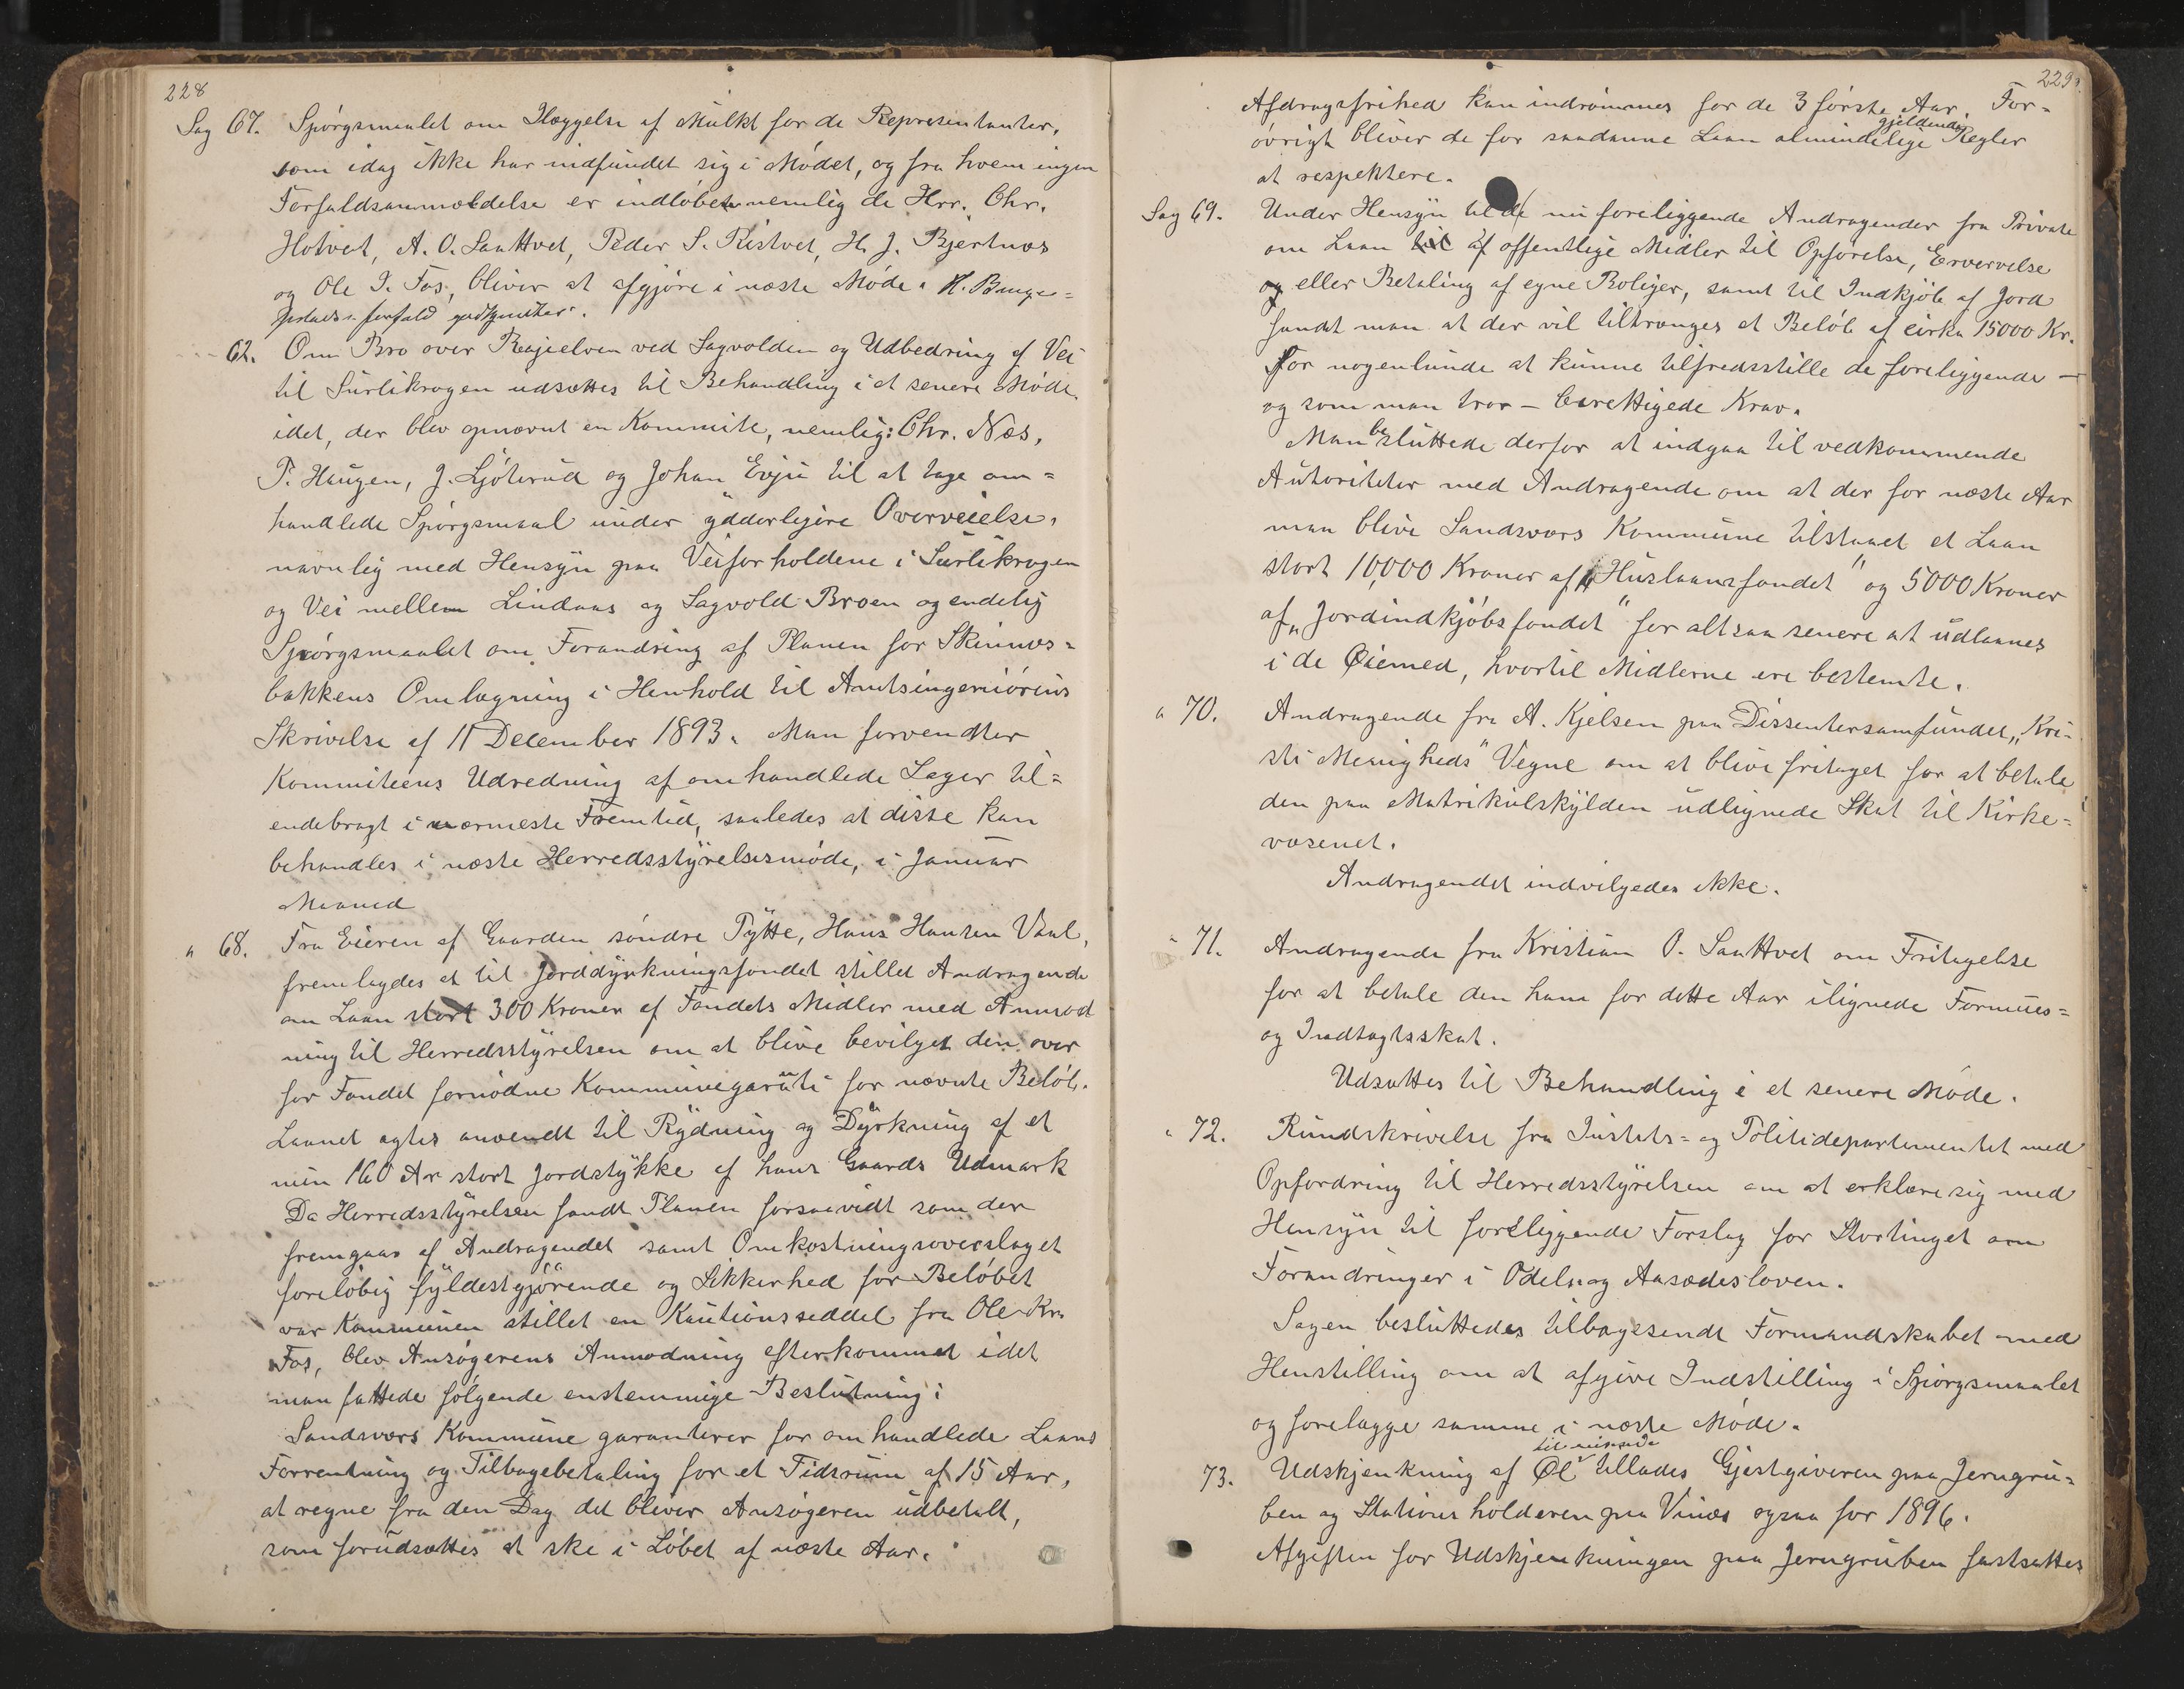 228
Sag 67. Spörgsmaalet om Ilæggelse af Mulkt for de Repræsentanter,
som idag ikke har indfundet sig i Mödet, og fra hvem ingen
Forfaldsanmældelse er indlöbet nemlig de Hrr. Chr.
Hotvet, A. O. Saattvet, Peder S. Ristvet, H. J. Bjertnæs
og Ole I. Fos, bliver at afgjöre i næste Möde. H. Bunge-
forfald godkjendtes.
62. Om Bro over Rajeelven ved Sagvolden og Udbedring af Vei
til Surlikrogen udsættes til Behandling i et senere Möde,
idet, der blev opnævnt en Kommite, nemlig: Chr. Næs,
P. Haugen, J. Ljöterud og Johan Evju til at tage om=
handlede Spörgsmaal under ydderligere Overveielse,
navnlig med Hensyn paa Veiforholdene i Surlikrogen
og Vei mellem Lindaas og Sagvold Broen og endelig
Spörgsmaalet om Forandring af Planen for Skinnes=
bakkens Omlægning i Henhold til Amtsingeniörens
Skrivelse af 11 December 1893. Man forventer
Kommiteens Udredning af omhandlede Sager til=
endebragt i nærmeste Fremtid, saaledes at disse kan
behandles i næste Herredsstyrelsesmöde, i Januar
Maaned
" 68. Fra Eieren af Gaarden söndre Pytte, Hans Hansen Vaal,
fremlagdes et til Jorddyrkningsfondet stillet Andragende
om Laan stort 300 Kroner af Fondets Midler med Anmod
ning til Herredsstyrelsen om at blive bevilget den over
for Fondet fornödne Kommunegaranti for nævnte Belöb.
Laanet agtes anvendt til Rydning og Dyrkning af et
min 160 Ar stort Jordstykke af hans Gaards Udmark
Da Herredsstyrelsen fandt Planen forsaavidt som den
fremgaar af Andragendet samt Omkostningsoverslaget
forelöbig fyldestgjörende og Sikkerhed for Belöbet
var Kommunen stillet en Kautionsseddel fra Ole Kr.
Fos, blev Ansögerens Anmodning efterkommet idet
man fattede fölgende enstemmige Beslutning:
Sandsværs Kommune garanterer for omhandlede Laans
Forrentning og Tilbagebetaling for et Tidsrum af 15 Aar,
at regne fra den Dag det bliver Ansögeren udbetalt,
som forudsættes at ske i Löbet af næste Aar.
229.
Afdragsfrihed kan indrömmes for de 3 förste Aar. For=
gjeldende
övrigt bliver de for saadanne Laan almindelige Regler
at respektere.
Sag 69. Under Hensyn til de nu foreliggende Andragender fra Private
om Laan til af offentlige Midler til Opförelse, Erververvelse
og eller Betaling af egne Boliger, samt til Indkjöb af Jord
fandt man at der vil tiltrænges et Belöb af cirka 15000 Kr.
for nogenlunde at kunne tilfredsstille de foreliggende —
og som man tror — berettigede Krav.
Man besluttede derfor at indgaa til vedkommende
Autoriteter med Andragende om at der for næste Aar
maa blive Sandsværs Kommune tilstaaet et Laan
stort 10,000 Kroner af „Huslaansfondet" og 5000 Kroner
af „Jordindkjöbsfondet" for altsaa senere at udlaanes
i de Øiemed, hvortil Midlerne ere bestemte.
" 70. Andragende fra A. Kjelsen paa Dissentersamfundet „Kri-
sti Menigheds" Vegne om at blive fritaget for at betale
den paa Matrikulskylden udlignede Skat til Kirke=
væsenet.
Andragendet indvilgedes ikke.
" 71. Andragende fra Kristian O. Saattvet om Fritagelse
for at betale den ham for dette Aar ilignede Formues=
og Indtægtsskat.
Udsættes til Behandling i et senere Möde.
" 72. Rundskrivelse fra Justits= og Politidepartementet med
Opfordring til Herredsstyrelsen om at erklære sig med
Hensyn til foreliggende Forslag for Stortinget om
Forandringer i Odels og Aasædesloven.
Sagen besluttedes tilbagesendt Formandskabet med
Henstilling om at afgive Indstilling i Spörgsmaalet
og forelægge samme i næste Möde.
til reisende
73. Udskjenkning af Øl tillades Gjestgiveren paa Jerngru=
ben og Stationsholderen paa Vinæs ogsaa for 1896.
Afgiften for Udskjenkningen paa Jerngruben fastsættes